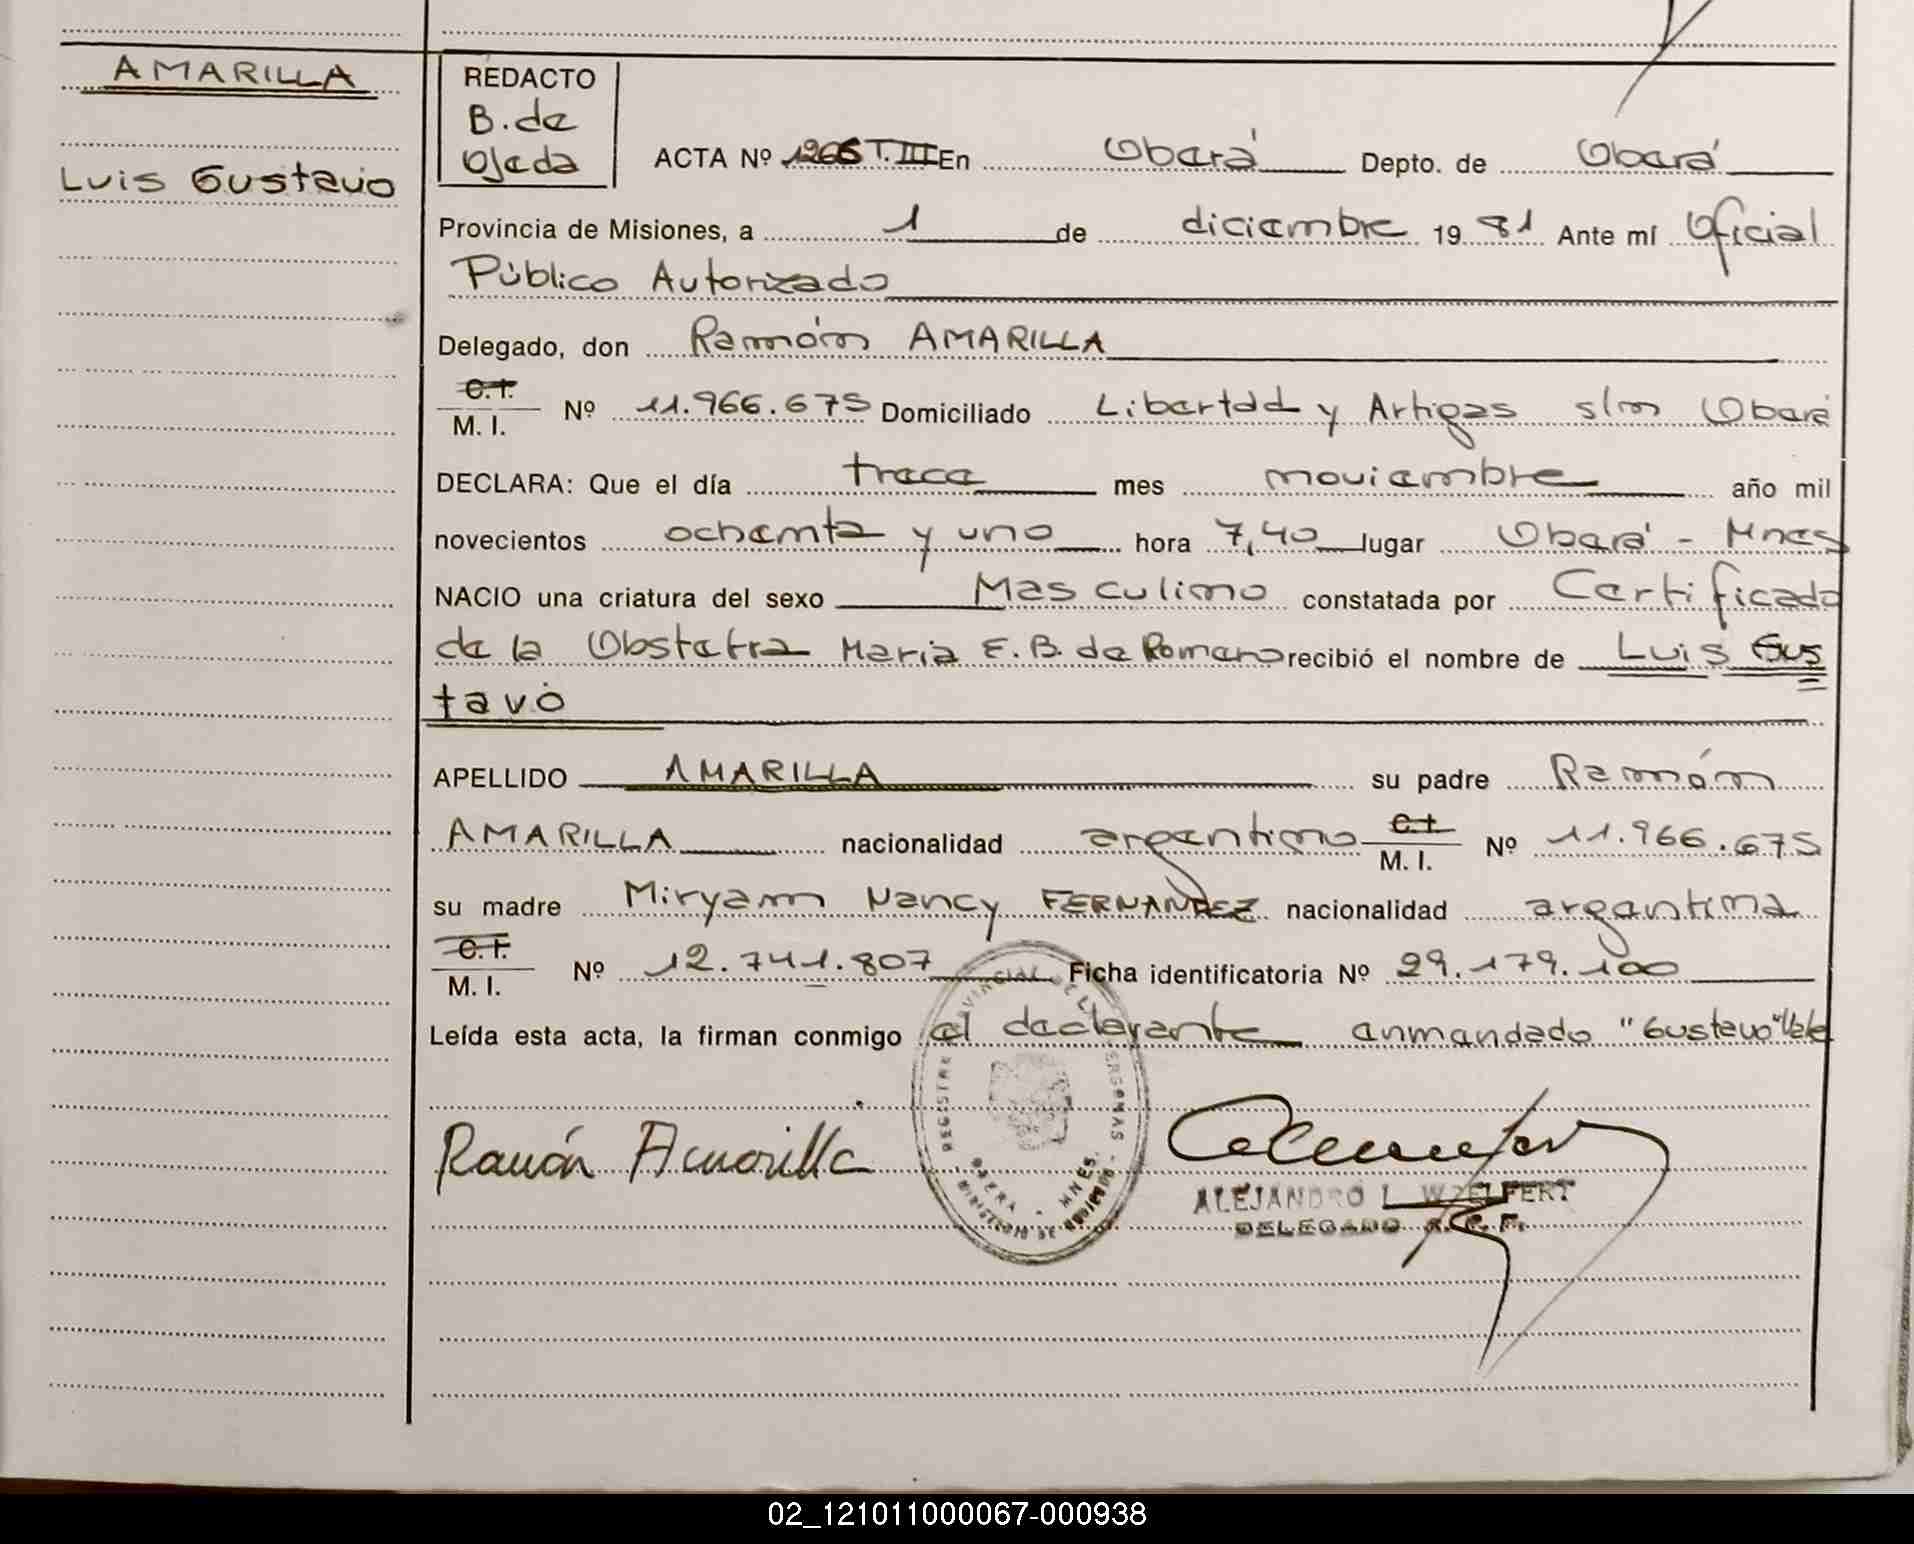 AMARILLA
Luis Gustavo
REDACTO
B. de
Ojeda
ACTA Nº 1266 T. III En Oberá Depto. de Oberá
Provincia de Misiones, a 1 de diciembre 19 81 Ante mí Oficial
Público Autorizado
Delegado, don Ramón AMARILLA
C.I.
M. I. Nº 11.966.675 Domiciliado Libertad y Artigas s/n Oberá
DECLARA: Que el día trece mes noviembre año mil
novecientos ochenta y uno hora 7,40 lugar Oberá - Mnes
NACIO una criatura del sexo Masculino constatada por Certificado
de la Obstetra Maria E. B. de Romano recibió el nombre de Luis Gus
tavo
APELLIDO AMARILLA su padre Ramón
AMARILLA nacionalidad argentino C.I. M. I. Nº 11.966.675
su madre Miryam Nancy FERNANDEZ nacionalidad argentina
C.I.
M. I. Nº 12.741.807 Ficha identificatoria Nº 29.179.100
Leída esta acta, la firman conmigo el declarante enmendado "Gustavo" Vale
Ramón Amarilla
ALEJANDRO L. WZELFERT
DELEGADO R. P.
OBERA - MNES.
02_121011000067-000938